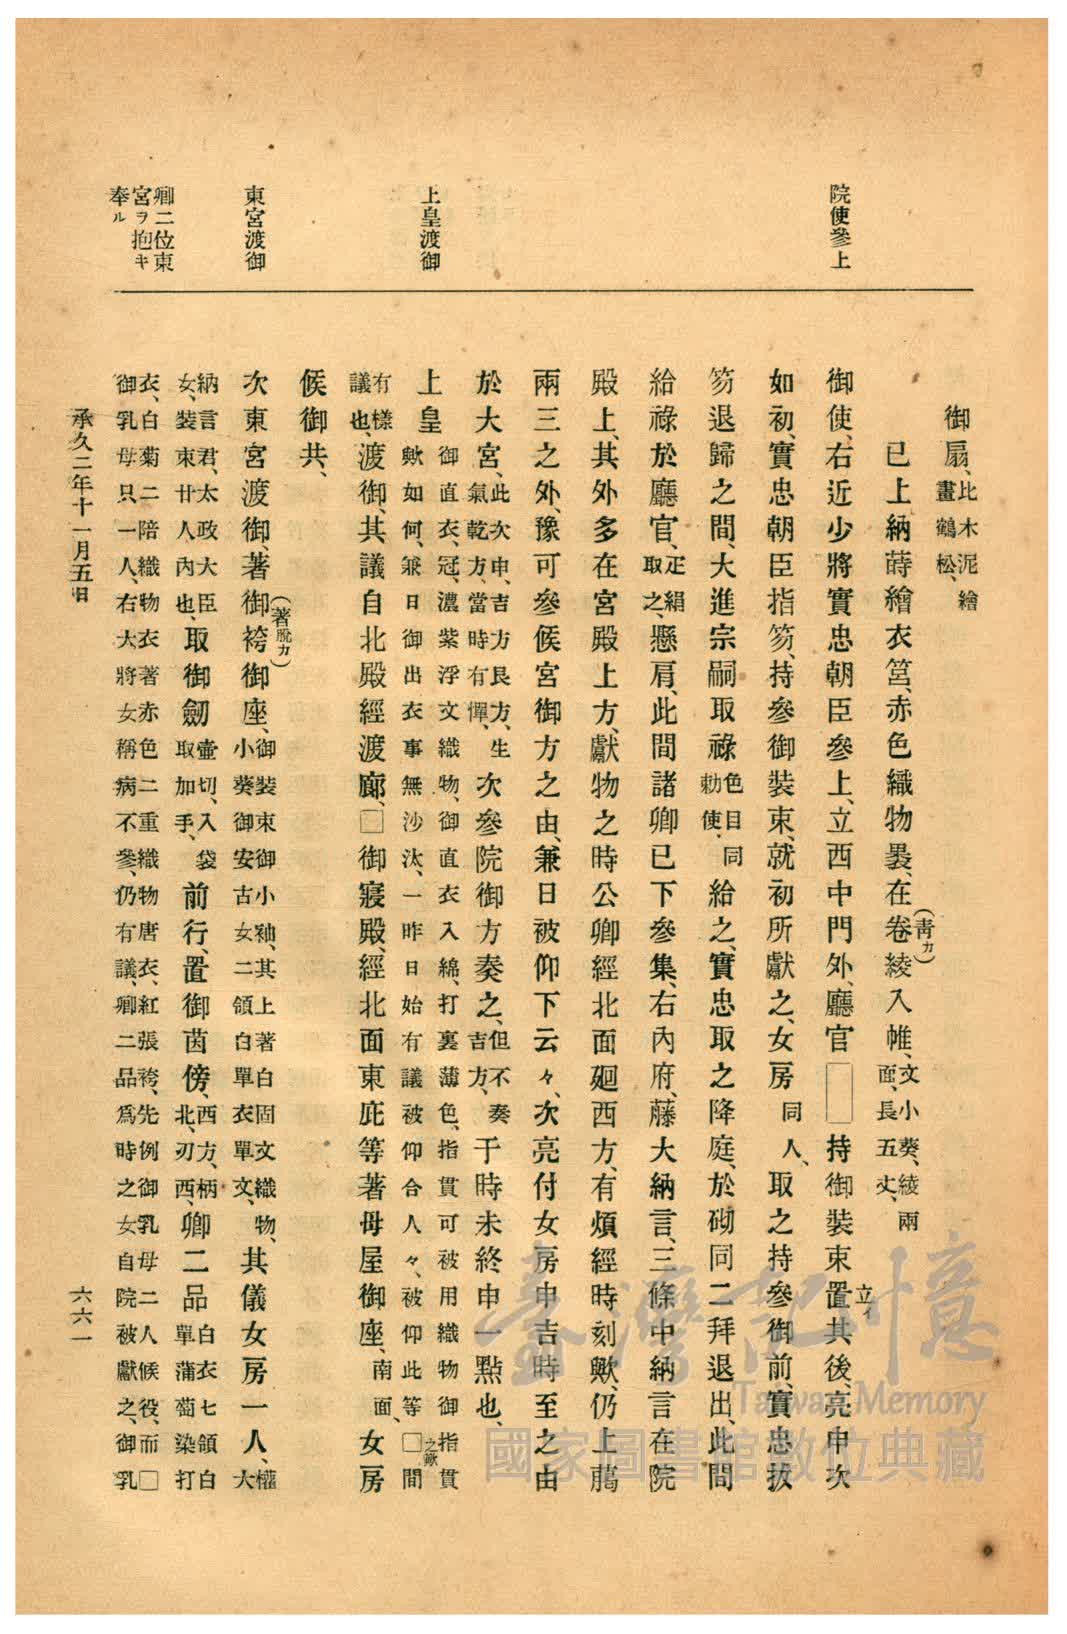 院使參上
上皇渡御
東宮渡御
卿二位東
宮ヲ抱キ
奉ル
御扇、比木泥繪
畫鶴松、
已上納蒔繪衣筥、赤色織物褁、在卷(青カ)綾入帷、文小葵、綾兩
面、長五丈、
御使、右近少將實忠朝臣參上、立西中門外、廳官□持御裝束置其立イ後、亮申次
如初、實忠朝臣指笏、持參御裝束、就初所獻之、女房同人、取之持參御前、實忠拔
笏退歸之間、大進宗嗣取祿色目同
勅使、給之、實忠取之降庭、於砌同二拜退出、此間
給祿於廳官、疋絹
取之、懸肩、此間諸卿已下參集、右內府、藤大納言、三條中納言在院
殿上、其外多在宮殿上方、獻物之時公卿經北面廻西方、有煩經時刻歟、仍上﨟
兩三之外、豫可參候宮御方之由、兼日被仰下云々、次亮付女房申吉時至之由
於大宮、此次申、吉方艮方、生
氣乾方、當時有憚、次參院御方奏之、但不奏
吉方、于時未終申一點也、
上皇御直衣、冠、濃紫浮文織物、御直衣入綿、打裏薄色、指貫可被用織物御指貫
歟如何、兼日御出衣事無沙汰、一昨日始有議被仰合人々、被仰此等□之歟間
有樣
議也、渡御、其議自北殿經渡廊、□御寢殿、經北面東庇等著母屋御座、南面、女房
候御共、
次東宮渡御、著御袴(著脫カ)御座、御裝束御小釉、其上著白固文織物、
小葵御安古女二領白單衣單文、其儀女房一人、權大
納言君、太政大臣
女、裝束廿人內也、取御劒壺切、入袋
取加手、前行、置御茵傍、西方、柄
北、刃西、卿二品白衣七領白
單蒲萄染打
衣、白菊二陪織物衣著赤色二重織物唐衣、紅張袴、先例御乳母二人候役、而□
御乳母只一人、右大將女稱病不參、仍有議、卿二品爲時之女自院被獻之、御乳
承久二年十一月五日
六六一
臺灣記憶
Taiwan Memory
國家圖書館數位典藏